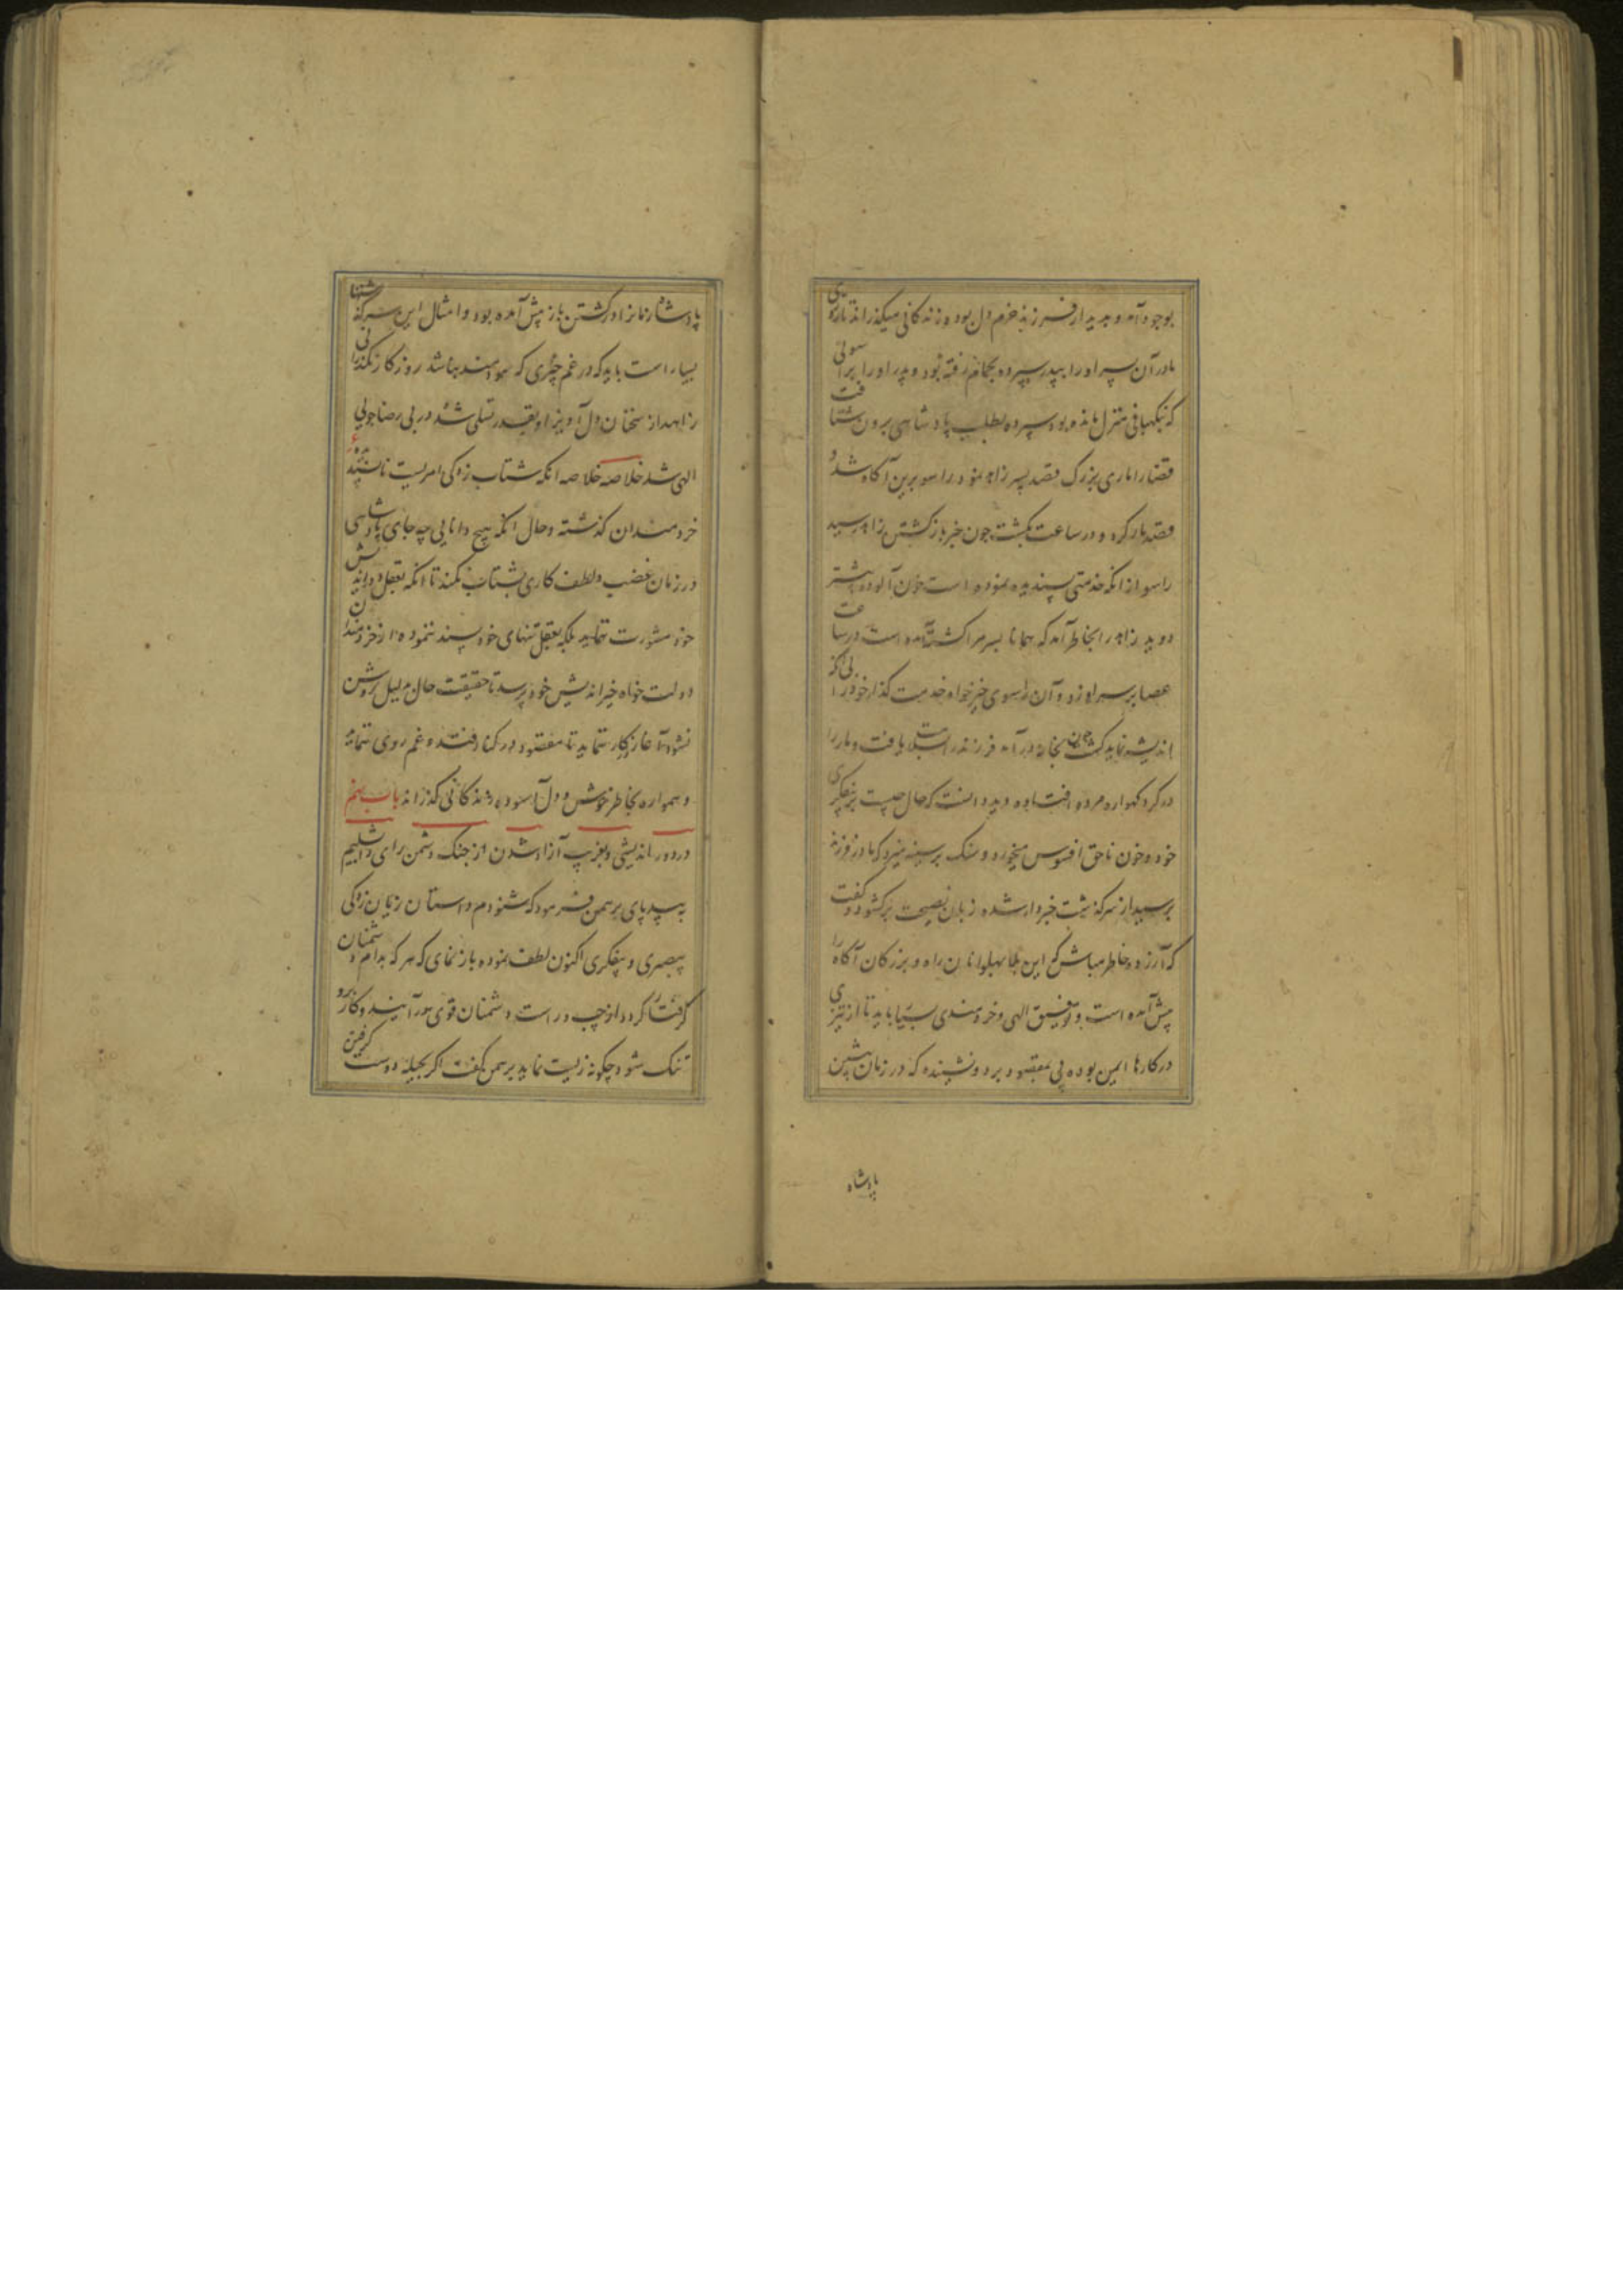 بوجود آمد و بدیدار فرزند خرم دل بود و زندگانی میگذراند تا روزی
مادر آن پسر او را بپدر سپرده بحمام رفته بود و پدر او را براسوئی
که نگهبانی منزل مانده بود سپرده بطلب پادشاهی برون شتافت
قضا را ماری بزرگ قصد پسر زاهد نمود راسو برین آگاه شد و
قصد مار کرد و در ساعت بکشت چون خبر بازگشتن زاهد رسید
راسو از آنکه خدمتی پسندیده نموده است خون آلوده پیشتر
دوید زاهد را بخاطر آمد که همانا پسر مرا کشته آمده است در ساعت
عصا بر سر او زد و آن راسوی خیرخواه خدمت گذار خود را بی آنکه
اندیشه نماید کشت چون بخانه درآمد فرزند را سلامت یافت و مار را
در گرد گهواره مرده افتاده دید دانست که حال چیست بر بیفکری
خود و خون ناحق افسوس میخورد و سنگ بر سینه میزد که مادر فرزند
برسید از سرگذشت خبردار شده زبان نصیحت برگشود و گفت
که آزرده خاطر مباش که این بلا پهلوانان راه و بزرگان آگاه را
پیش آمده است و توفیق الهی و خردمندی بسیار باید تا از تیزی
در کارها ایمن بوده پی بمقصود برد و نشینده که در زمان پیشین
پادشاه
پادشاه را نیز از کشتن باز پیش آمده بود و امثال این سرگذشتها
بسیار است باید که در غم چیزی که سودمند نباشد روزگار نگذرانی
زاهد از سخنان دل آویز او بقدر تسلی شده در پی رضاجوئی
الهی شد خلاصه خلاصه آنکه شتاب زدگی امریست ناپسندیده
خردمندان گذشته و حال آنکه هیچ دانایی چه جای پادشاهی
در زمان غضب و لطف کاری بشتاب نکند تا آنکه بعقل دوراندیش
خود مشورت نماید بلکه بعقل تنهای خود پسند ننموده از خردمندان
دولت خواه خیراندیش خود پرسد تا حقیقت حال بدلیل روشن
نشود آغاز کار ننماید تا مقصود در کنار افتد و غم روی ننماید
و همواره بخاطر خوش و دل آسوده زندگانی گذراند باب نهم
در دوراندیشی و بفریب آزاد شدن از جنگ دشمن رای دابشلیم
به بیدپای برهمن فرمود که شنودم داستان زیان زدگی
بیصبری و بیفکری اکنون لطف نموده باز نمای که هر که بدام دشمنان
گرفتار گردد از چپ و راست دشمنان قوی برآیند و کار برو
تنگ شود چگونه زیست نماید برهمن گفت اگر بحیله دوست گرفتن